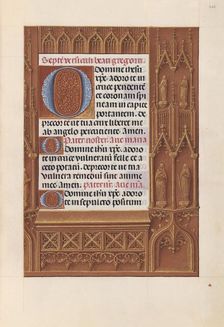 Septē versiculi beati gregorii
O Domine ihesu
xp̄e adoro te in
cruce pendente
et coronam spi
neam in capite
portantem. De
precor te ut tua crux liberet me
ab angelo percutiente Amen.
Pater noster. Aue maria
O Domine ihū xp̄e adoro te in cru
ce vulneratū felle et ace
to potatū. deprecor te ut tua
vulnera remediū sint anime
mee. Amen. Pater nr̄. aue ma.
O Domine ihū xp̄e adoro
te in sepulcro positum